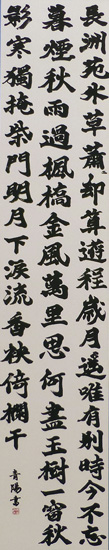 長洲苑外草蕭却算遊程歲月遥唯有別時今不忘
暮煙秋雨過楓橋金風萬里思何盡玉樹一窗秋
影寒獨掩柴門明月下淚流香袂倚欄干
青陽書